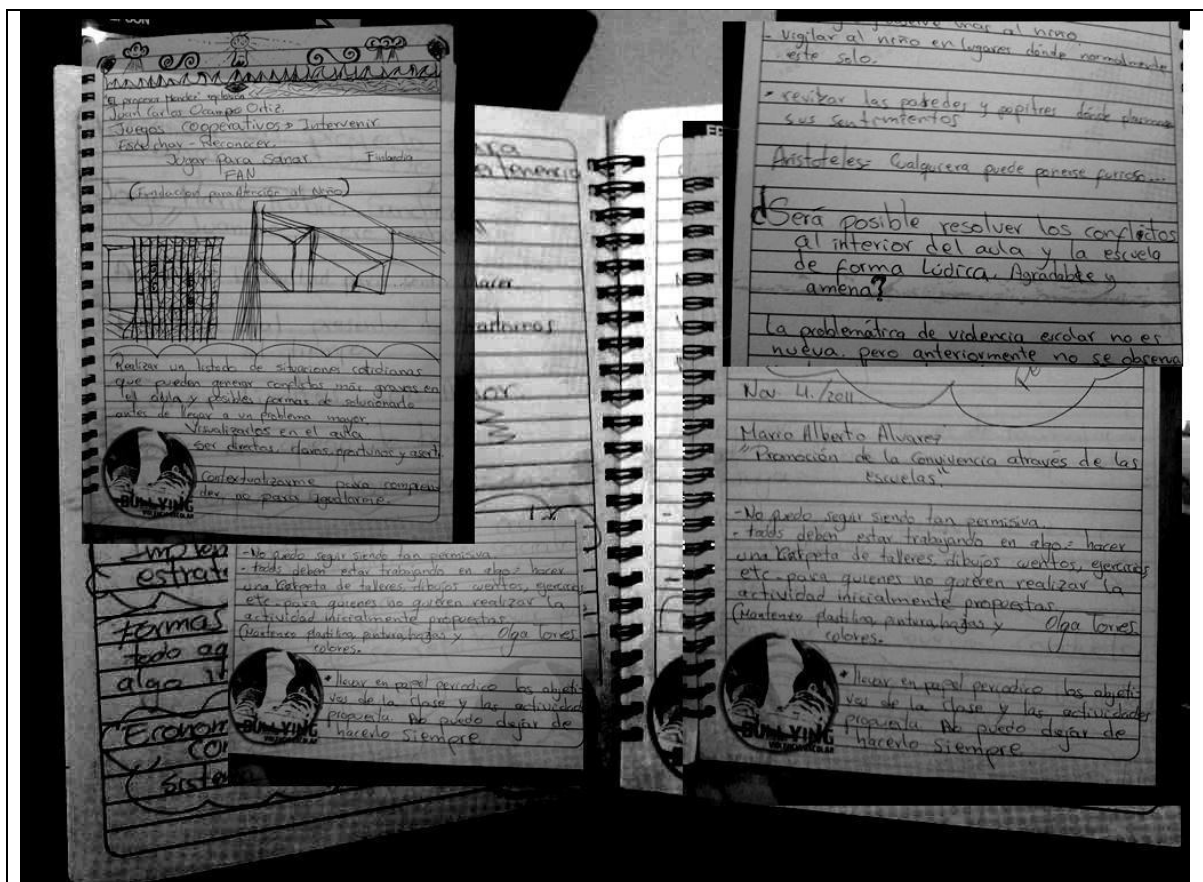 Juan Carlos Ocampo Ortiz.
Juegos cooperativos » Intervenir
Escuchar - Reconocer.
Jugar para Sanar. Finlandia
FAN
(Fundación para Atención al Niño)
Realizar un listado de situaciones cotidianas
que pueden generar conflictos más graves en
el aula y posibles formas de solucionarlo
antes de llegar a un problema mayor.
Visualizarlos en el aula
Ser directos, claros, oportunos y asert.
Contextualizarme para compren
der, no para igualarme.
BULLYING
VIOLENCIA ESCOLAR
al niño.
- vigilar al niño en lugares dónde normalmente
este solo.
sus sentimientos
Aristoteles: Cualquiera puede ponerse furioso...
¿Será posible resolver los conflictos
al interior del aula y la escuela
de forma Lúdica. Agradable y
amena?
La problemática de violencia escolar no es
nueva. pero anteriormente no se observa
Nov. 4./2011
Mario Alberto Alvarez
"Promoción de la Convivencia através de las
escuelas"
-No puedo seguir siendo tan permisiva.
- todos deben estar trabajando en algo: hacer
una carpeta de talleres, dibujos cuentos, ejercicios
etc. para quienes no quieren realizar la
actividad inicialmente propuestas.
(Mantener plastilina, pintura, hojas y Olga Torres.
colores.
* llevar en papel periodico los objeti-
vos de la clase y las actividades
propuesta. No puedo dejar de
hacerlo siempre
BULLYING
VIOLENCIA ESCOLAR
-No puedo seguir siendo tan permisiva.
- todos deben estar trabajando en algo: hacer
una carpeta de talleres, dibujos cuentos, ejercicios
etc. para quienes no quieren realizar la
actividad inicialmente propuestas.
(Mantener plastilina, pintura, hojas y Olga Torres.
colores.
* llevar en papel periodico los objeti-
vos de la clase y las actividades
propuesta. No puedo dejar de
hacerlo siempre
BULLYING
VIOLENCIA ESCOLAR
formas
todo
algo